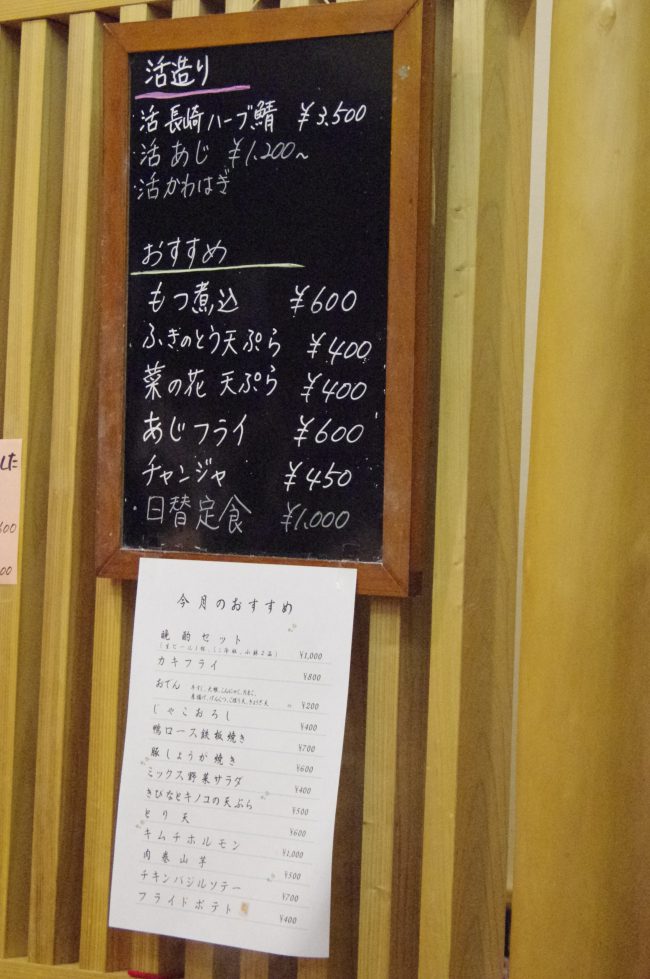 活造り
活 長崎ハーブ鯖 ¥3,500
活 あじ ¥1,200〜
活かわはぎ
おすすめ
もつ煮込 ¥600
ふきのとう天ぷら ¥400
菜の花 天ぷら ¥400
あじフライ ¥600
チャンジャ ¥450
日替定食 ¥1,000
した
600
00
今月のおすすめ
晩酌セット ¥1,000
カキフライ ¥800
おでん ¥200
じゃこおろし ¥400
鴨ロース鉄板焼き ¥700
豚しょうが焼き ¥600
ミックス野菜サラダ ¥400
きびなとキノコの天ぷら ¥500
とり天 ¥600
キムチホルモン ¥1,000
肉巻山芋 ¥500
チキンバジルソテー ¥700
フライドポテト ¥400